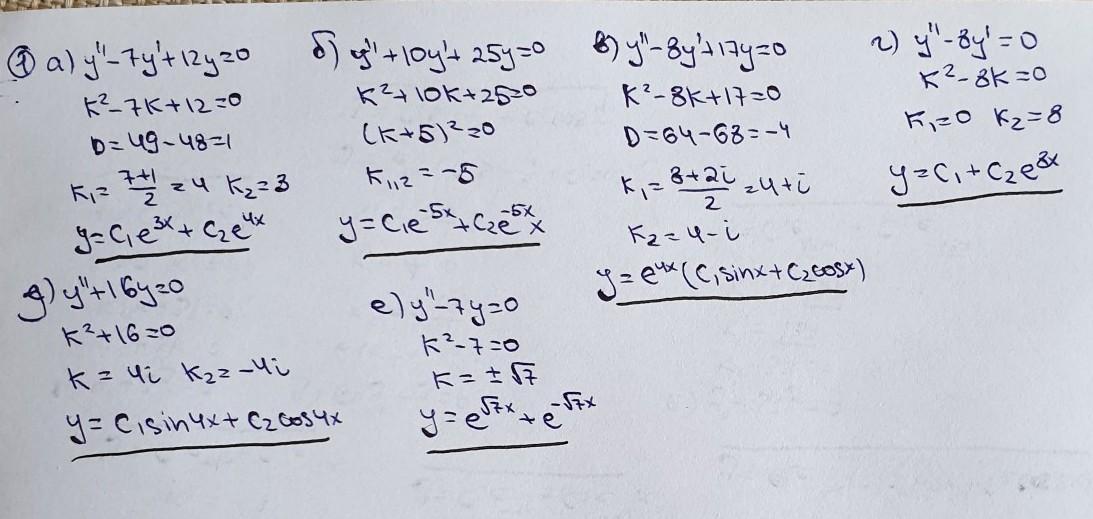 ① а) y''-7y'+12y=0
k²-7k+12=0
D=49-48=1
k₁=(7+1)/2=4 k₂=3
y=C₁e^{3x}+C₂e^{4x}
б) y''+10y'+25y=0
k²+10k+25=0
(k+5)²=0
k₁,₂=-5
y=C₁e^{-5x}+C₂e^{-5x}x
в) y''-8y'+17y=0
k²-8k+17=0
D=64-68=-4
k₁=(8+2i)/2=4+i
k₂=4-i
y=e^{4x}(C₁sinx+C₂cosx)
г) y''-8y'=0
k²-8k=0
k₁=0 k₂=8
y=C₁+C₂e^{8x}
д) y''+16y=0
k²+16=0
k=4i k₂=-4i
y=C₁sin4x+C₂cos4x
е) y''-7y=0
k²-7=0
k=±√7
y=e^{√7x}+e^{-√7x}